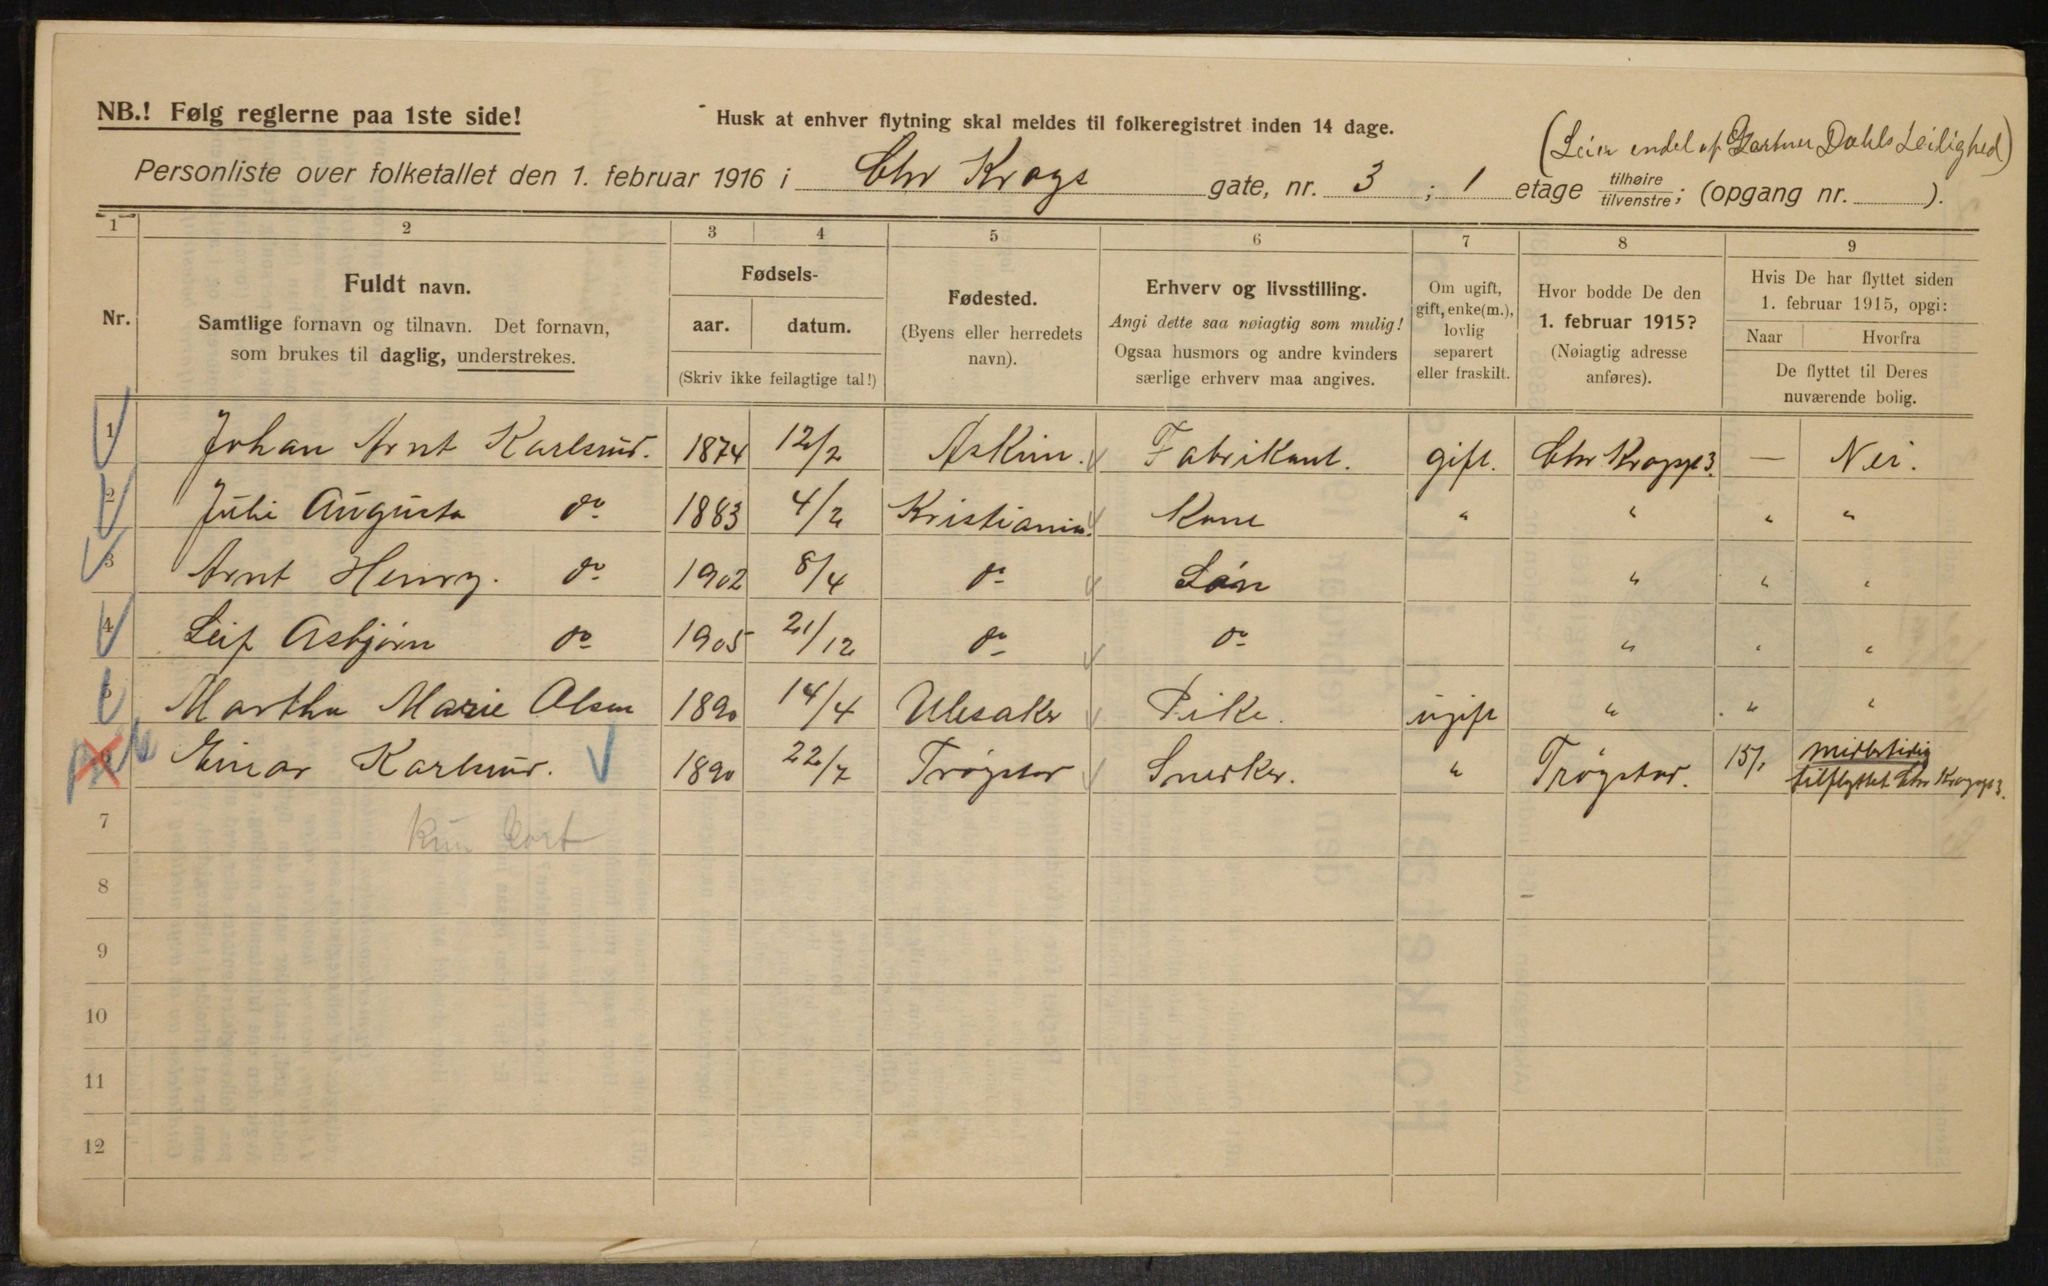 NB.! Følg reglerne paa 1ste side!
Husk at enhver flytning skal meldes til folkeregistret inden 14 dage.
(Leier endel af Gartner Dæhls Leilighed)
Personliste over folketallet den 1. februar 1916 i Chr Krogs gate, nr. 3 ; 1 etage tilhøire/tilvenstre; (opgang nr. ).
1 2 3 4 5 6 7 8 9
Nr.
Fuldt navn.
Samtlige fornavn og tilnavn. Det fornavn,
som brukes til daglig, understrekes.
Fødsels-
aar. datum.
(Skriv ikke feilagtige tal!)
Fødested.
(Byens eller herredets
navn).
Erhverv og livsstilling.
Angi dette saa nøiagtig som mulig!
Ogsaa husmors og andre kvinders
særlige erhverv maa angives.
Om ugift,
gift, enke(m.),
lovlig
separert
eller fraskilt.
Hvor bodde De den
1. februar 1915?
(Nøiagtig adresse
anføres).
Hvis De har flyttet siden
1. februar 1915, opgi:
Naar Hvorfra
De flyttet til Deres
nuværende bolig.
1 Johan Arnt Karlsrud. 1874 12/2 Askim. Fabrikant. gift. Chr Kroggt 3. — Nei.
2 Julie Augusta do 1883 4/2 Kristiania. Kone " " " "
3 Arnt Henry. do 1902 8/4 do Søn " " "
4 Leif Asbjørn do 1905 21/12 do do " " "
5 Martha Marie Olsen 1890 14/4 Ulesaker Pike. ugift " " "
6 Einar Karlsrud. 1890 22/7 Trøgstad Snerker. " Trøgstad. 15/1 midlertidig
tilflyttet Chr Kroggt 3.
7 Kun kort
8
9
10
11
12